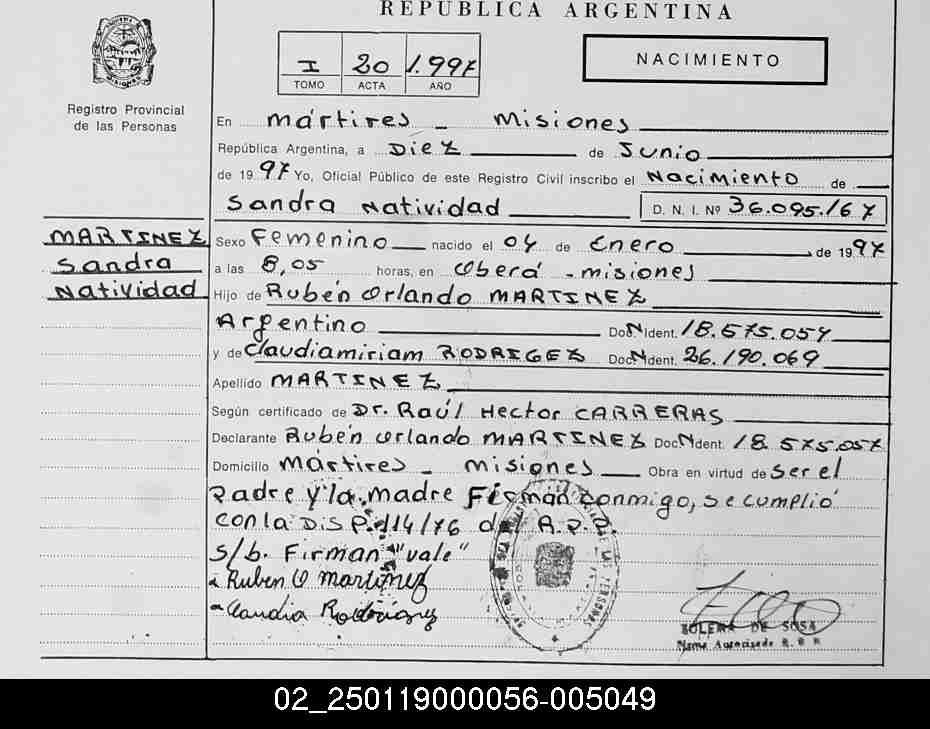 REPUBLICA ARGENTINA
I 20 1.997
TOMO ACTA AÑO
NACIMIENTO
Registro Provincial
de las Personas
En mártires - misiones
República Argentina, a Diez de Junio
de 1997 Yo, Oficial Público de este Registro Civil inscribo el Nacimiento de
Sandra Natividad D. N. I. Nº 36.095.167
MARTINEZ
Sandra
Natividad
Sexo Femenino nacido el 04 de Enero de 1997
a las 8,05 horas, en Oberá - misiones
Hijo de Rubén Orlando MARTINEZ
Argentino Doc. Nident. 18.575.057
y de Claudia miriam RODRIGEZ Doc. Nident. 26.190.069
Apellido MARTINEZ
Según certificado de Dr. Raúl Hector CARRERAS
Declarante Rubén Orlando MARTINEZ Doc. Nident. 18.575.057
Domicilio mártires - misiones Obra en virtud de ser el
padre y la madre Firman conmigo, se cumplió
con la DISP. 114/76 del R.P.P.
s/b. Firman "vale"
Ruben O martinez
Claudia Rodriguez
DE SOSA
02_250119000056-005049